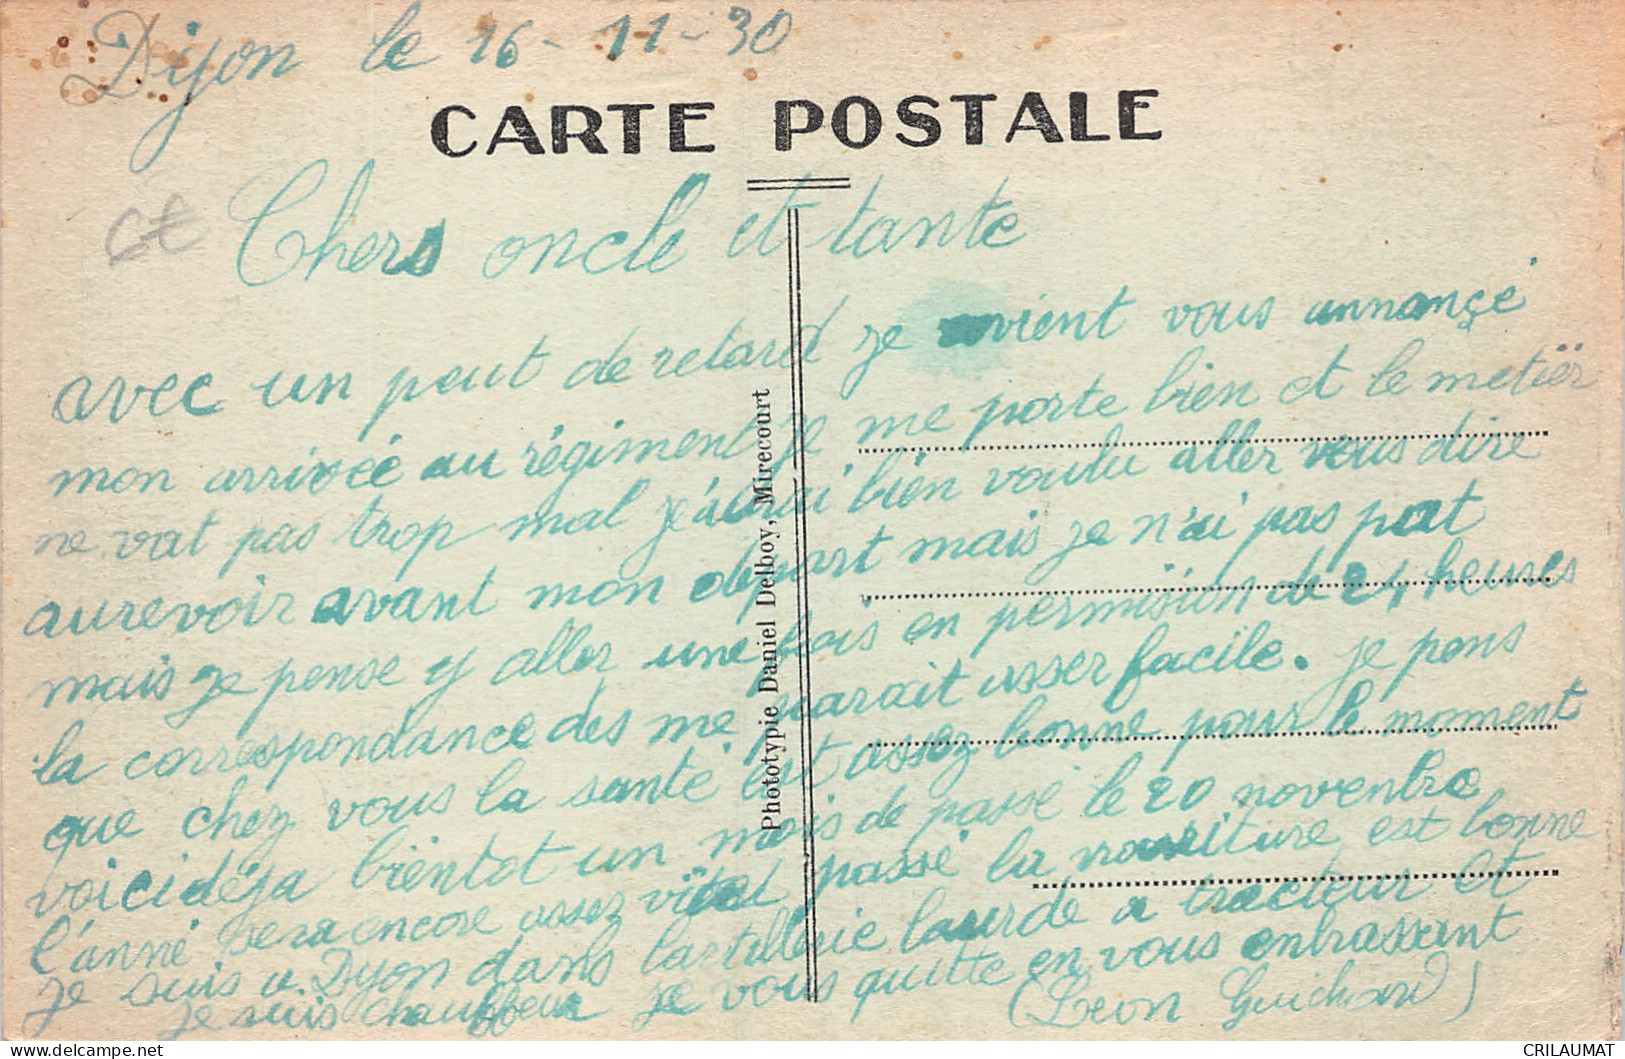 Dijon le 16-11-30
CARTE POSTALE
6€
Chers oncle et tante
avec un peut de retard je vient vous annonçé
mon arrivée au régiment je me porte bien et le metïer
ne vat pas trop mal j'aurai bien voulu aller vous dire
aurevoir avant mon départ mais je n'ai pas put
mais je pense y aller une fois en permision de 24 heures
la correspondance des me parait asser facile. je pens
que chez vous la santé est assez bonne pour le moment
voici déja bientot un mois de passé le 20 novembre
l'anné sera encore assez vite passé la nouriture est bonne
je suis a Dijon dans lartillerie lourde a tracteur et
je suis chauffeur je vous quitte en vous enbrassant
(Léon Guichard)
Phototypie Daniel Delboy, Mirecourt
CRILAUMAT